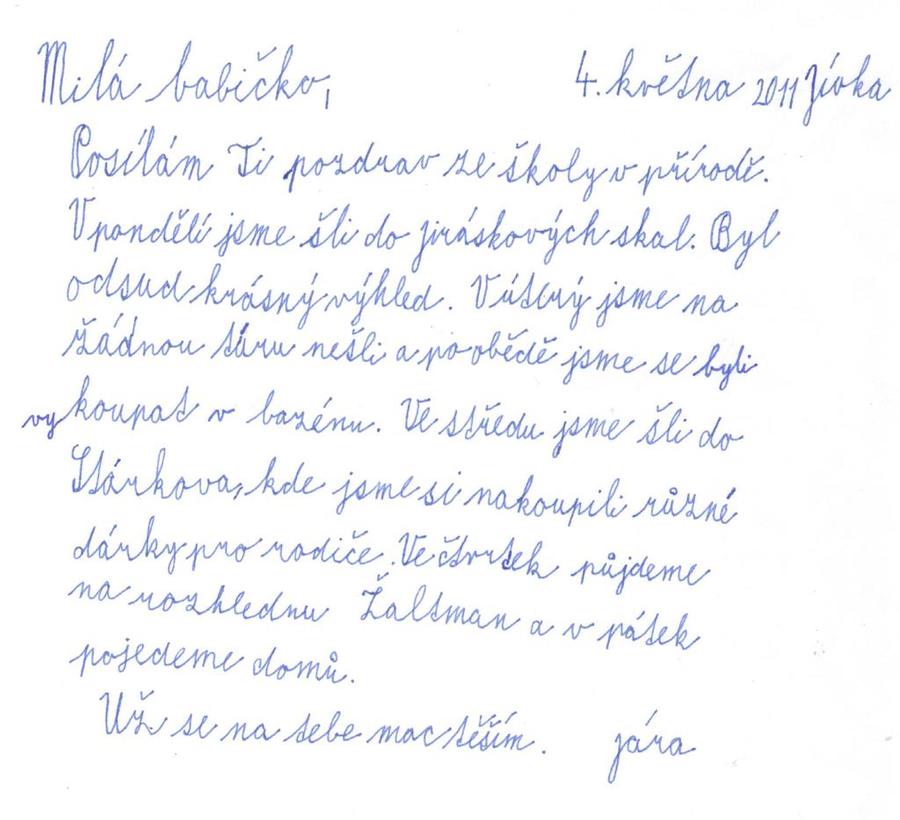 Milá babičko, 4. května 2011 Jívka
Posílám Ti pozdrav ze školy v přírodě.
V pondělí jsme šli do jiráskových skal. Byl
odsud krásný výhled. V úterý jsme na
žádnou túru nešli a po obědě jsme se byli
vykoupat v bazénu. Ve středu jsme šli do
Stárkova, kde jsme si nakoupili různé
dárky pro rodiče. Ve čtvrtek půjdeme
na rozhlednu Žaltman a v pátek
pojedeme domů.
Už se na tebe moc těším. jára